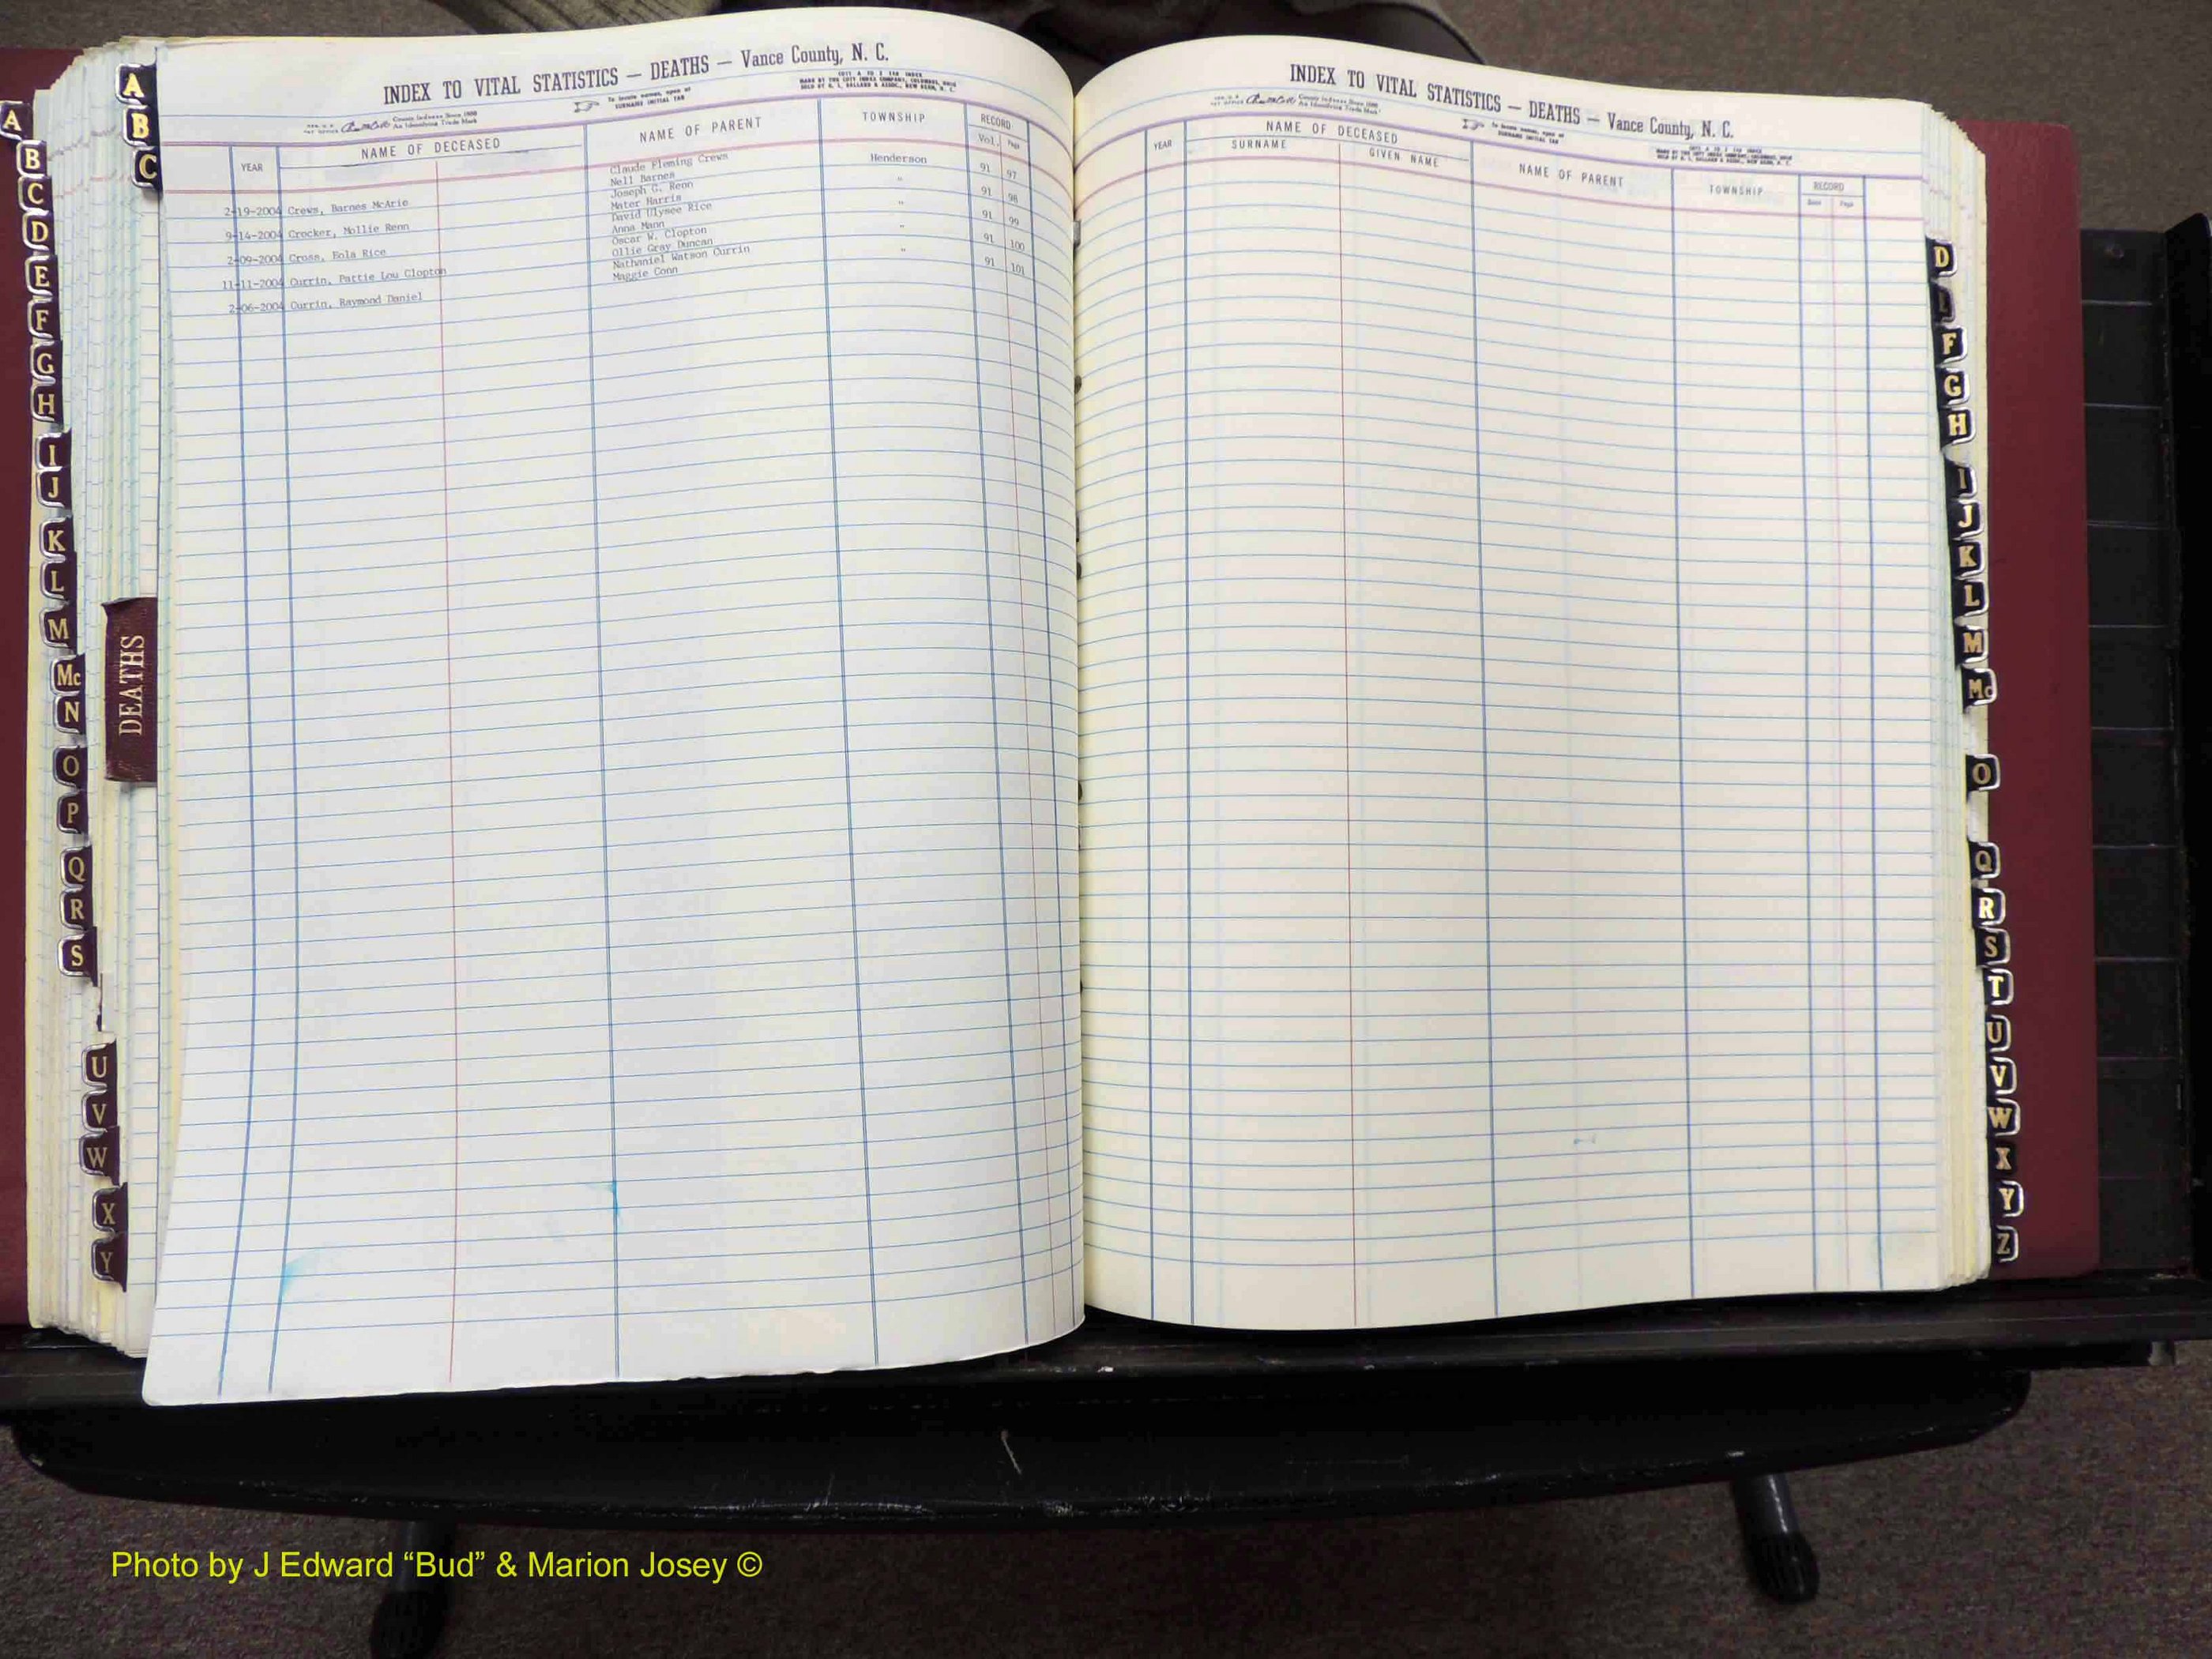 INDEX TO VITAL STATISTICS — DEATHS — Vance County, N. C.
County Indexes Since 1888
An Identifying Trade Mark
To locate names, open at
SURNAME INITIAL TAB
COTT A TO Z INDEX
MADE BY THE COTT INDEX COMPANY, COLUMBUS, OHIO
YEAR NAME OF DECEASED NAME OF PARENT TOWNSHIP RECORD
Vol. Page
2-19-2004 Crews, Barnes McArie Claude Fleming Crews Henderson 91 97
Nell Barnes
9-14-2004 Crocker, Mollie Renn Joseph G. Renn " 91 98
Mater Harris
2-09-2004 Cross, Eola Rice David Ulysee Rice " 91 99
Anna Mann
11-11-2004 Currin, Pattie Lou Clopton Oscar W. Clopton " 91 100
Ollie Gray Duncan
2-06-2004 Currin, Raymond Daniel Nathaniel Watson Currin " 91 101
Maggie Conn
INDEX TO VITAL STATISTICS — DEATHS — Vance County, N. C.
County Indexes Since 1888
An Identifying Trade Mark
To locate names, open at
SURNAME INITIAL TAB
YEAR NAME OF DECEASED NAME OF PARENT TOWNSHIP RECORD
SURNAME GIVEN NAME Book Page
A
B
C
D
E
F
G
H
I
J
K
L
M
Mc
N
O
P
Q
R
S
U
V
W
X
Y
A
B
C
DEATHS
D
E
F
G
H
I
J
K
L
M
Mc
O
Q
R
S
T
U
V
W
X
Y
Z
Photo by J Edward “Bud” & Marion Josey ©